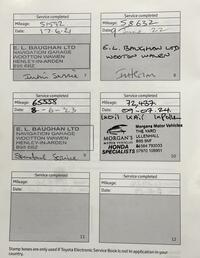 Service completed
Mileage: 51552
Date: 17-6-21
E. L. BAUGHAN LTD
NAVIGATION GARAGE
WOOTTON WAWEN
HENLEY-IN-ARDEN
B95 6BZ
7
Service completed
Mileage: 58632
Date: 9 June 22
E. L. BAUGHAN LTD
WOOTTON WAWEN
Interim
8
Service completed
Mileage: 65558
Date: 8-6-23
E. L. BAUGHAN LTD
NAVIGATION GARAGE
WOOTTON WAWEN
HENLEY-IN-ARDEN
B95 6BZ
Service
9
Service completed
Mileage: 72,437
Date: 09-07-24
MORGAN'S
HONDA
SPECIALISTS
Morgans Motor Vehicles
THE YARD
ULLENHALL
B95
01564 793033
10
Service completed
Mileage:
Date:
11
Service completed
Mileage:
Date:
12
Stamp boxes are only used if Toyota Electronic Service Book is not in application in your
country.